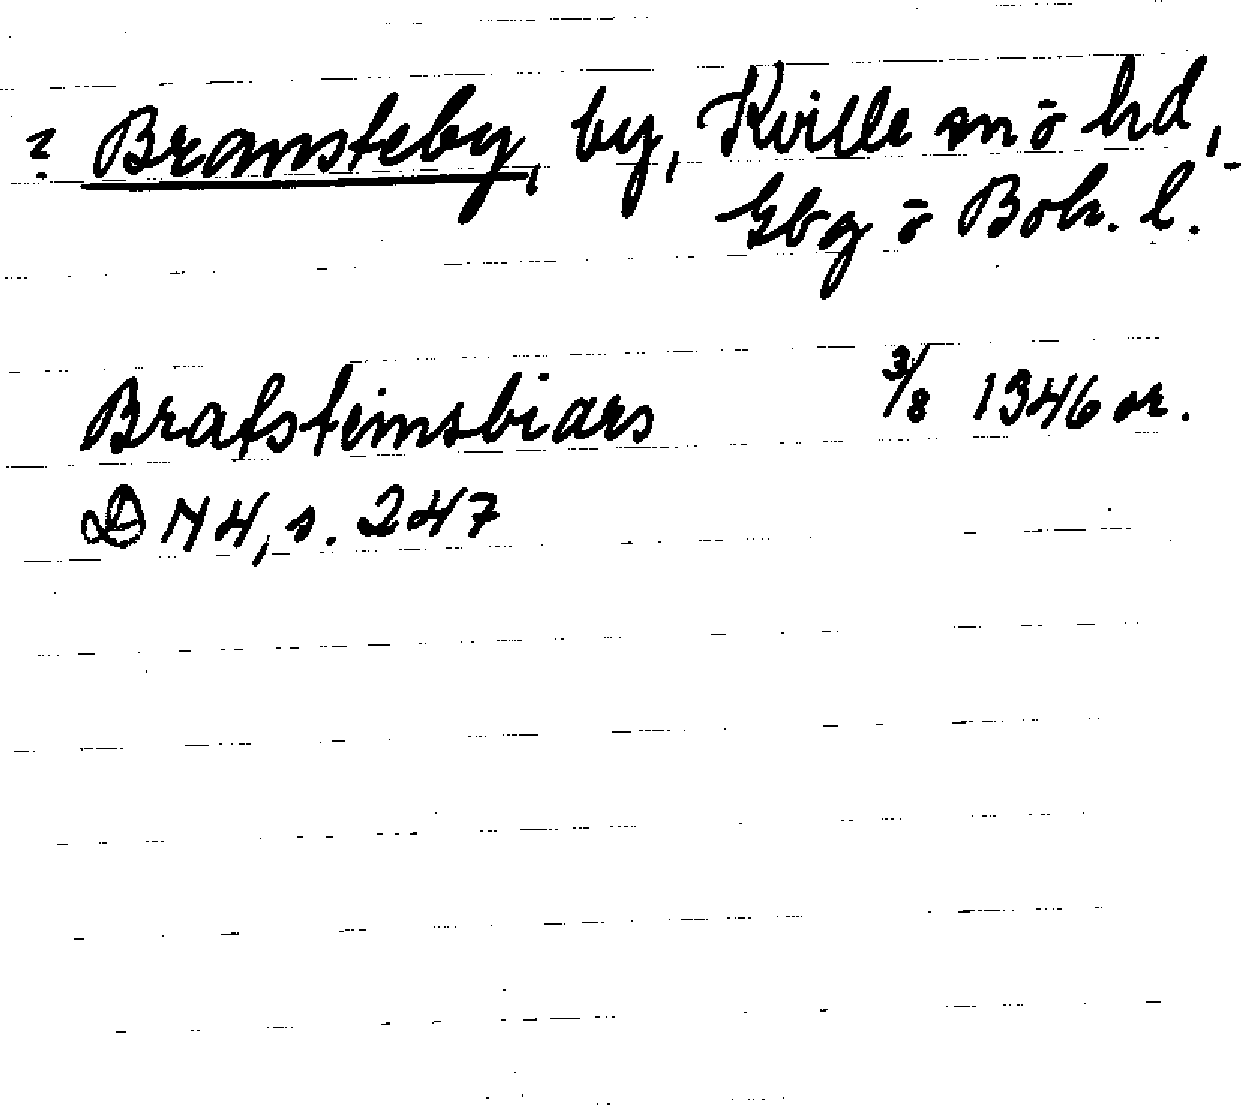 ? Bramsteby, by, Kville sn o hd,
Gbg o Boh. l.
Brafsteimsbiars 3/8 1346 or.
DN 4, s. 247